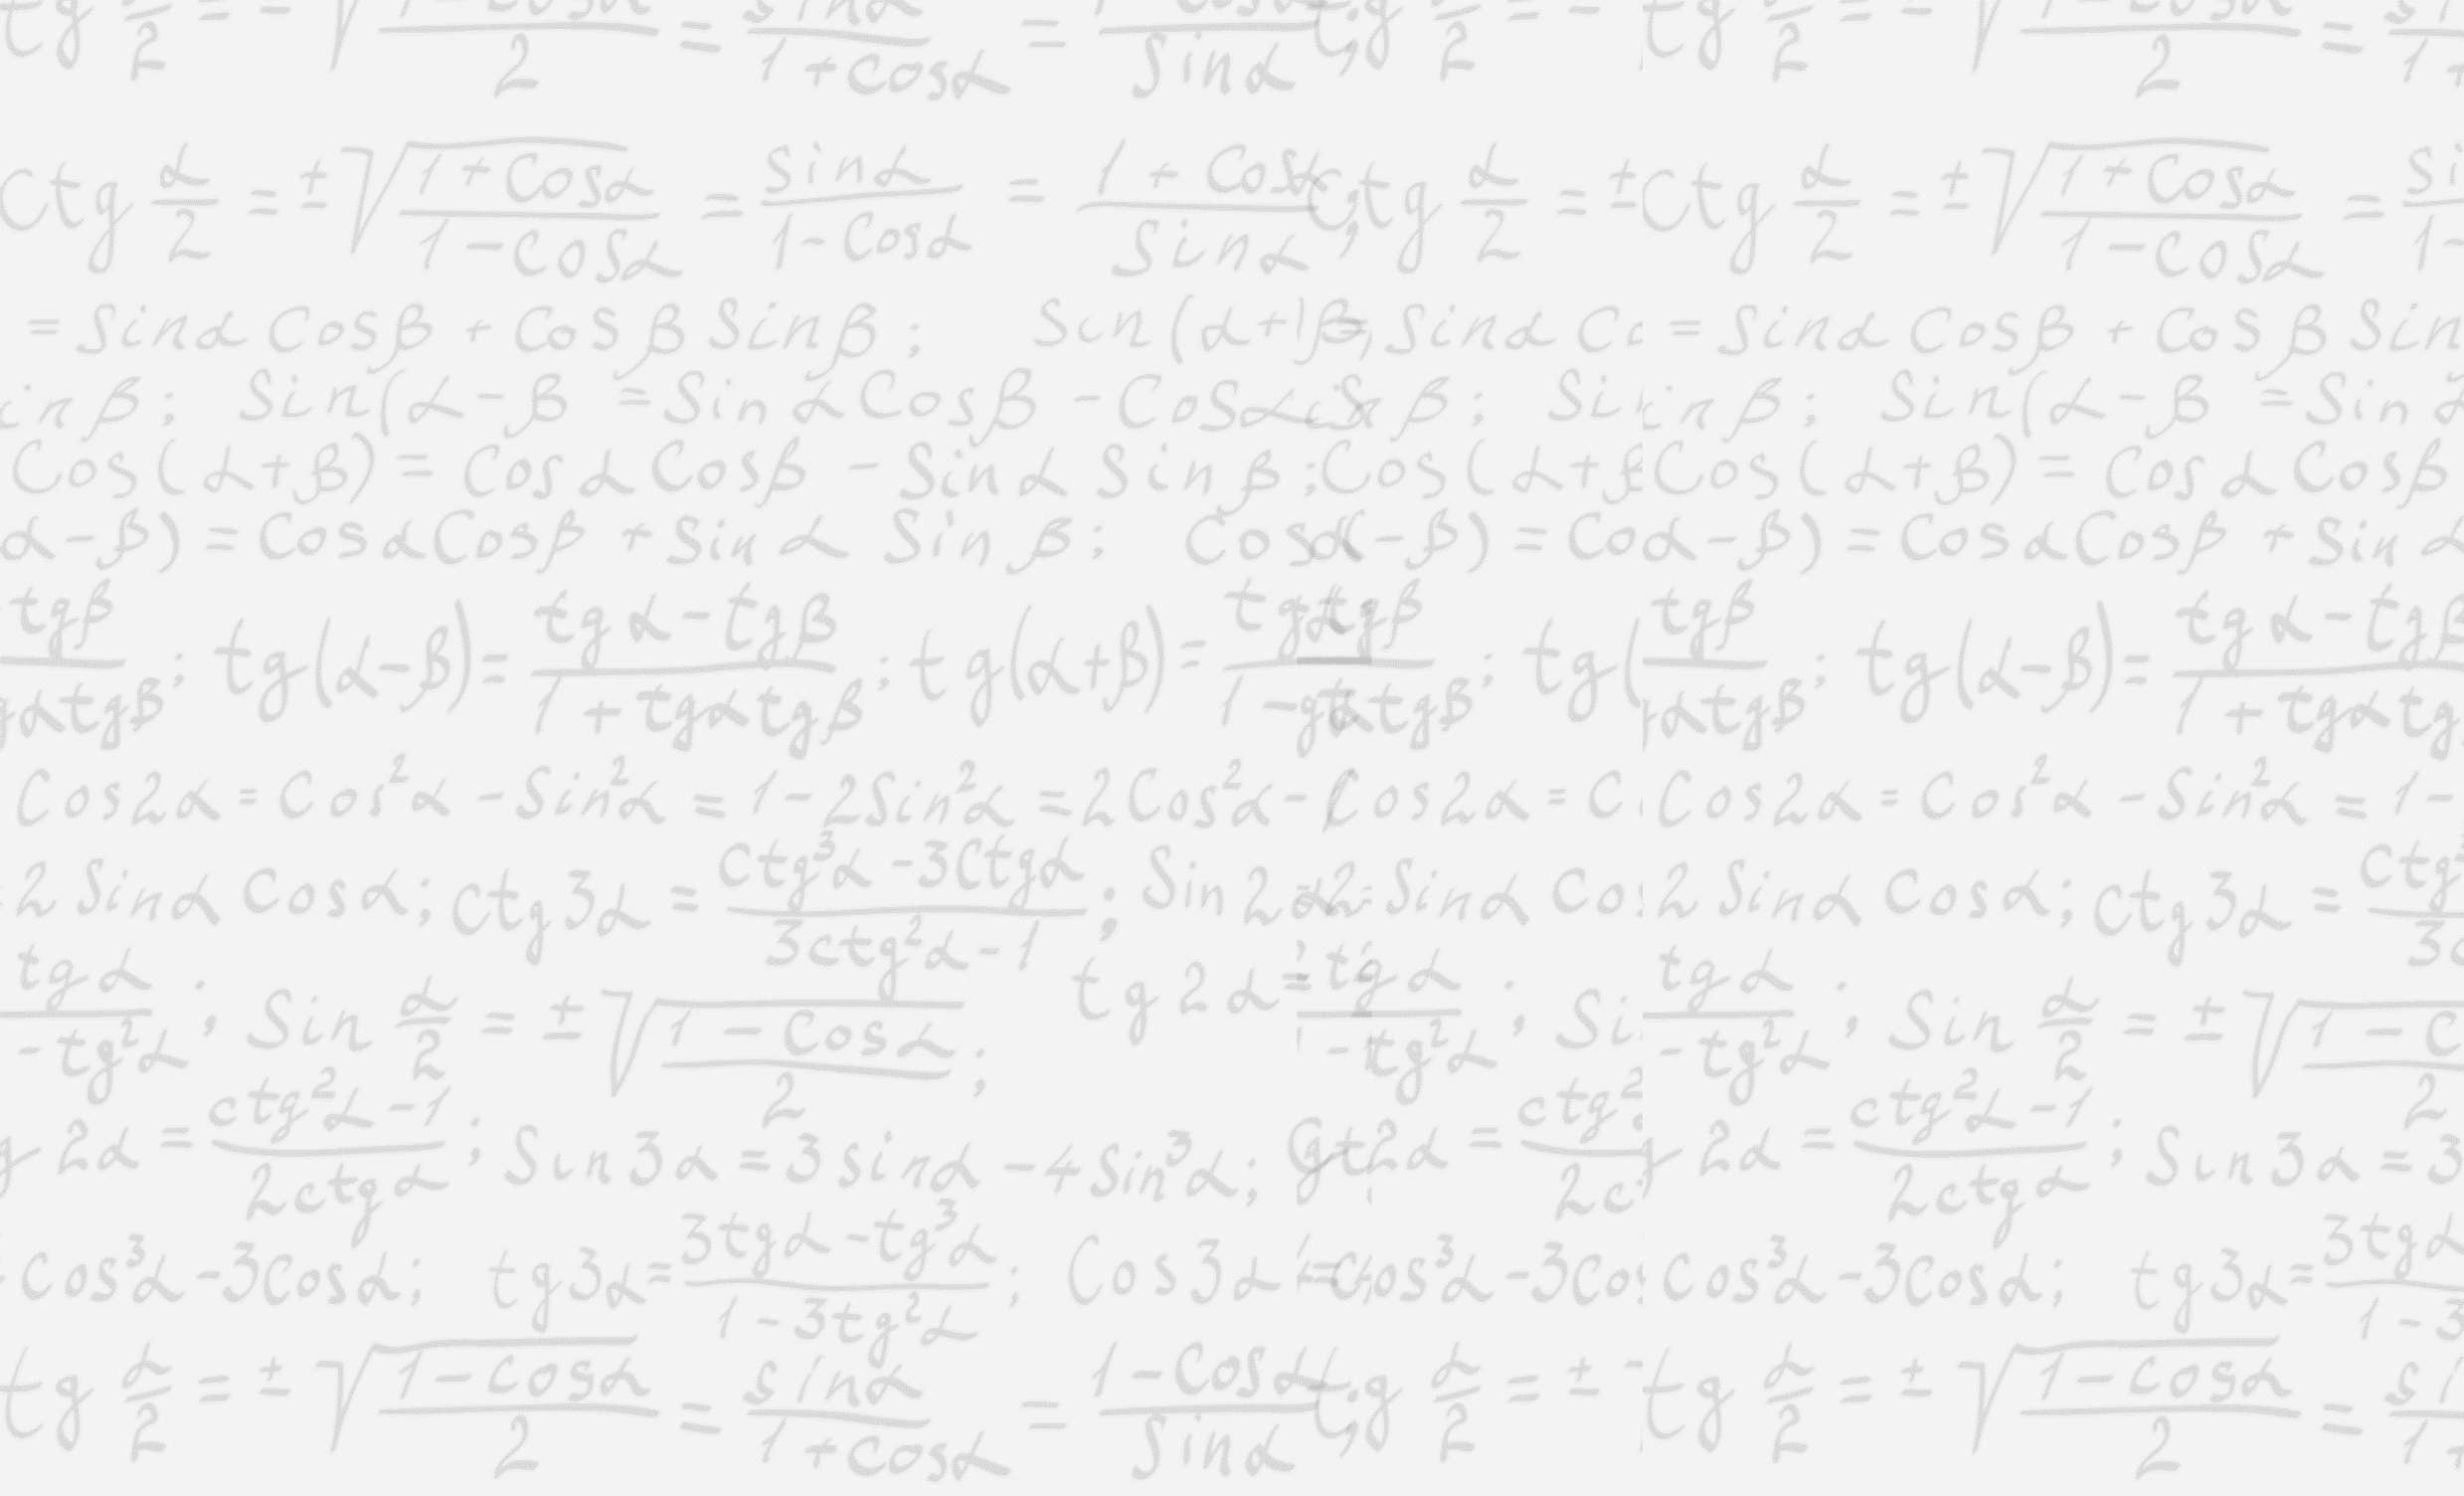 tg α/2 = ± √((1-cosα)/2) = sinα/(1+cosα) = 1-cosα/sinα; tg /2 = - tg /2 = - √((1-cosα)/2) = s/1+
Ctg α/2 = ± √((1+Cosα)/(1-cosα)) = sinα/(1-Cosα) = (1+Cosα)/Sinα; Ctg α/2 = ± Ctg α/2 = ± √((1+Cosα)/(1-cosα)) = Si/1-
= Sinα Cosβ + Cosβ Sinβ; Sin(α+β) = Sinα Co = Sinα Cosβ + Cosβ Sin
inβ; Sin(α-β = Sin α Cosβ - Cosα Sinβ; Si inβ; Sin(α-β = Sin α
Cos(α+β) = Cosα Cosβ - Sinα Sinβ; Cos(α+β Cos(α+β) = Cosα Cosβ
α-β) = CosαCosβ + Sin α Sinβ; Cos α-β) = Co α-β) = CosαCosβ + Sin α
tgβ/gαtgβ; tg(α-β) = (tgα-tgβ)/(1+tgαtgβ); tg(α+β) = tgα tgβ/(1-tgαtgβ); tg( tgβ/αtgβ; tg(α-β) = tgα-tgβ/1+tgαtg
Cos2α = Cos²α - Sin²α = 1-2Sin²α = 2Cos²α- Cos2α = C Cos2α = Cos²α - Sin²α = 1-
2 Sinα Cosα; ctg3α = (Ctg³α-3Ctgα)/(3ctg²α-1); Sin2α = 2 Sinα Cos 2 Sinα Cosα; ctg3α = ctg³/3c
tgα/-tg²α; Sin α/2 = ± √((1-Cosα)/2); tg2α = tgα/-tg²α; Si tgα/-tg²α; Sin α/2 = ± √(1-C/2
g2α = (ctg²α-1)/(2ctgα); Sin3α = 3sinα-4sin³α; Ct g2α = ctg²/2c 2α = (ctg²α-1)/(2ctgα); Sin3α = 3
cos³α-3Cosα; tg3α = (3tgα-tg³α)/(1-3tg²α); Cos3α = Cos³α-3Cos cos³α-3Cosα; tg3α = 3tgα/1-3
tg α/2 = ± √((1-cosα)/2) = sinα/(1+cosα) = (1-Cosα)/Sinα; tg α/2 = ± tg α/2 = ± √((1-cosα)/2) = si/1+